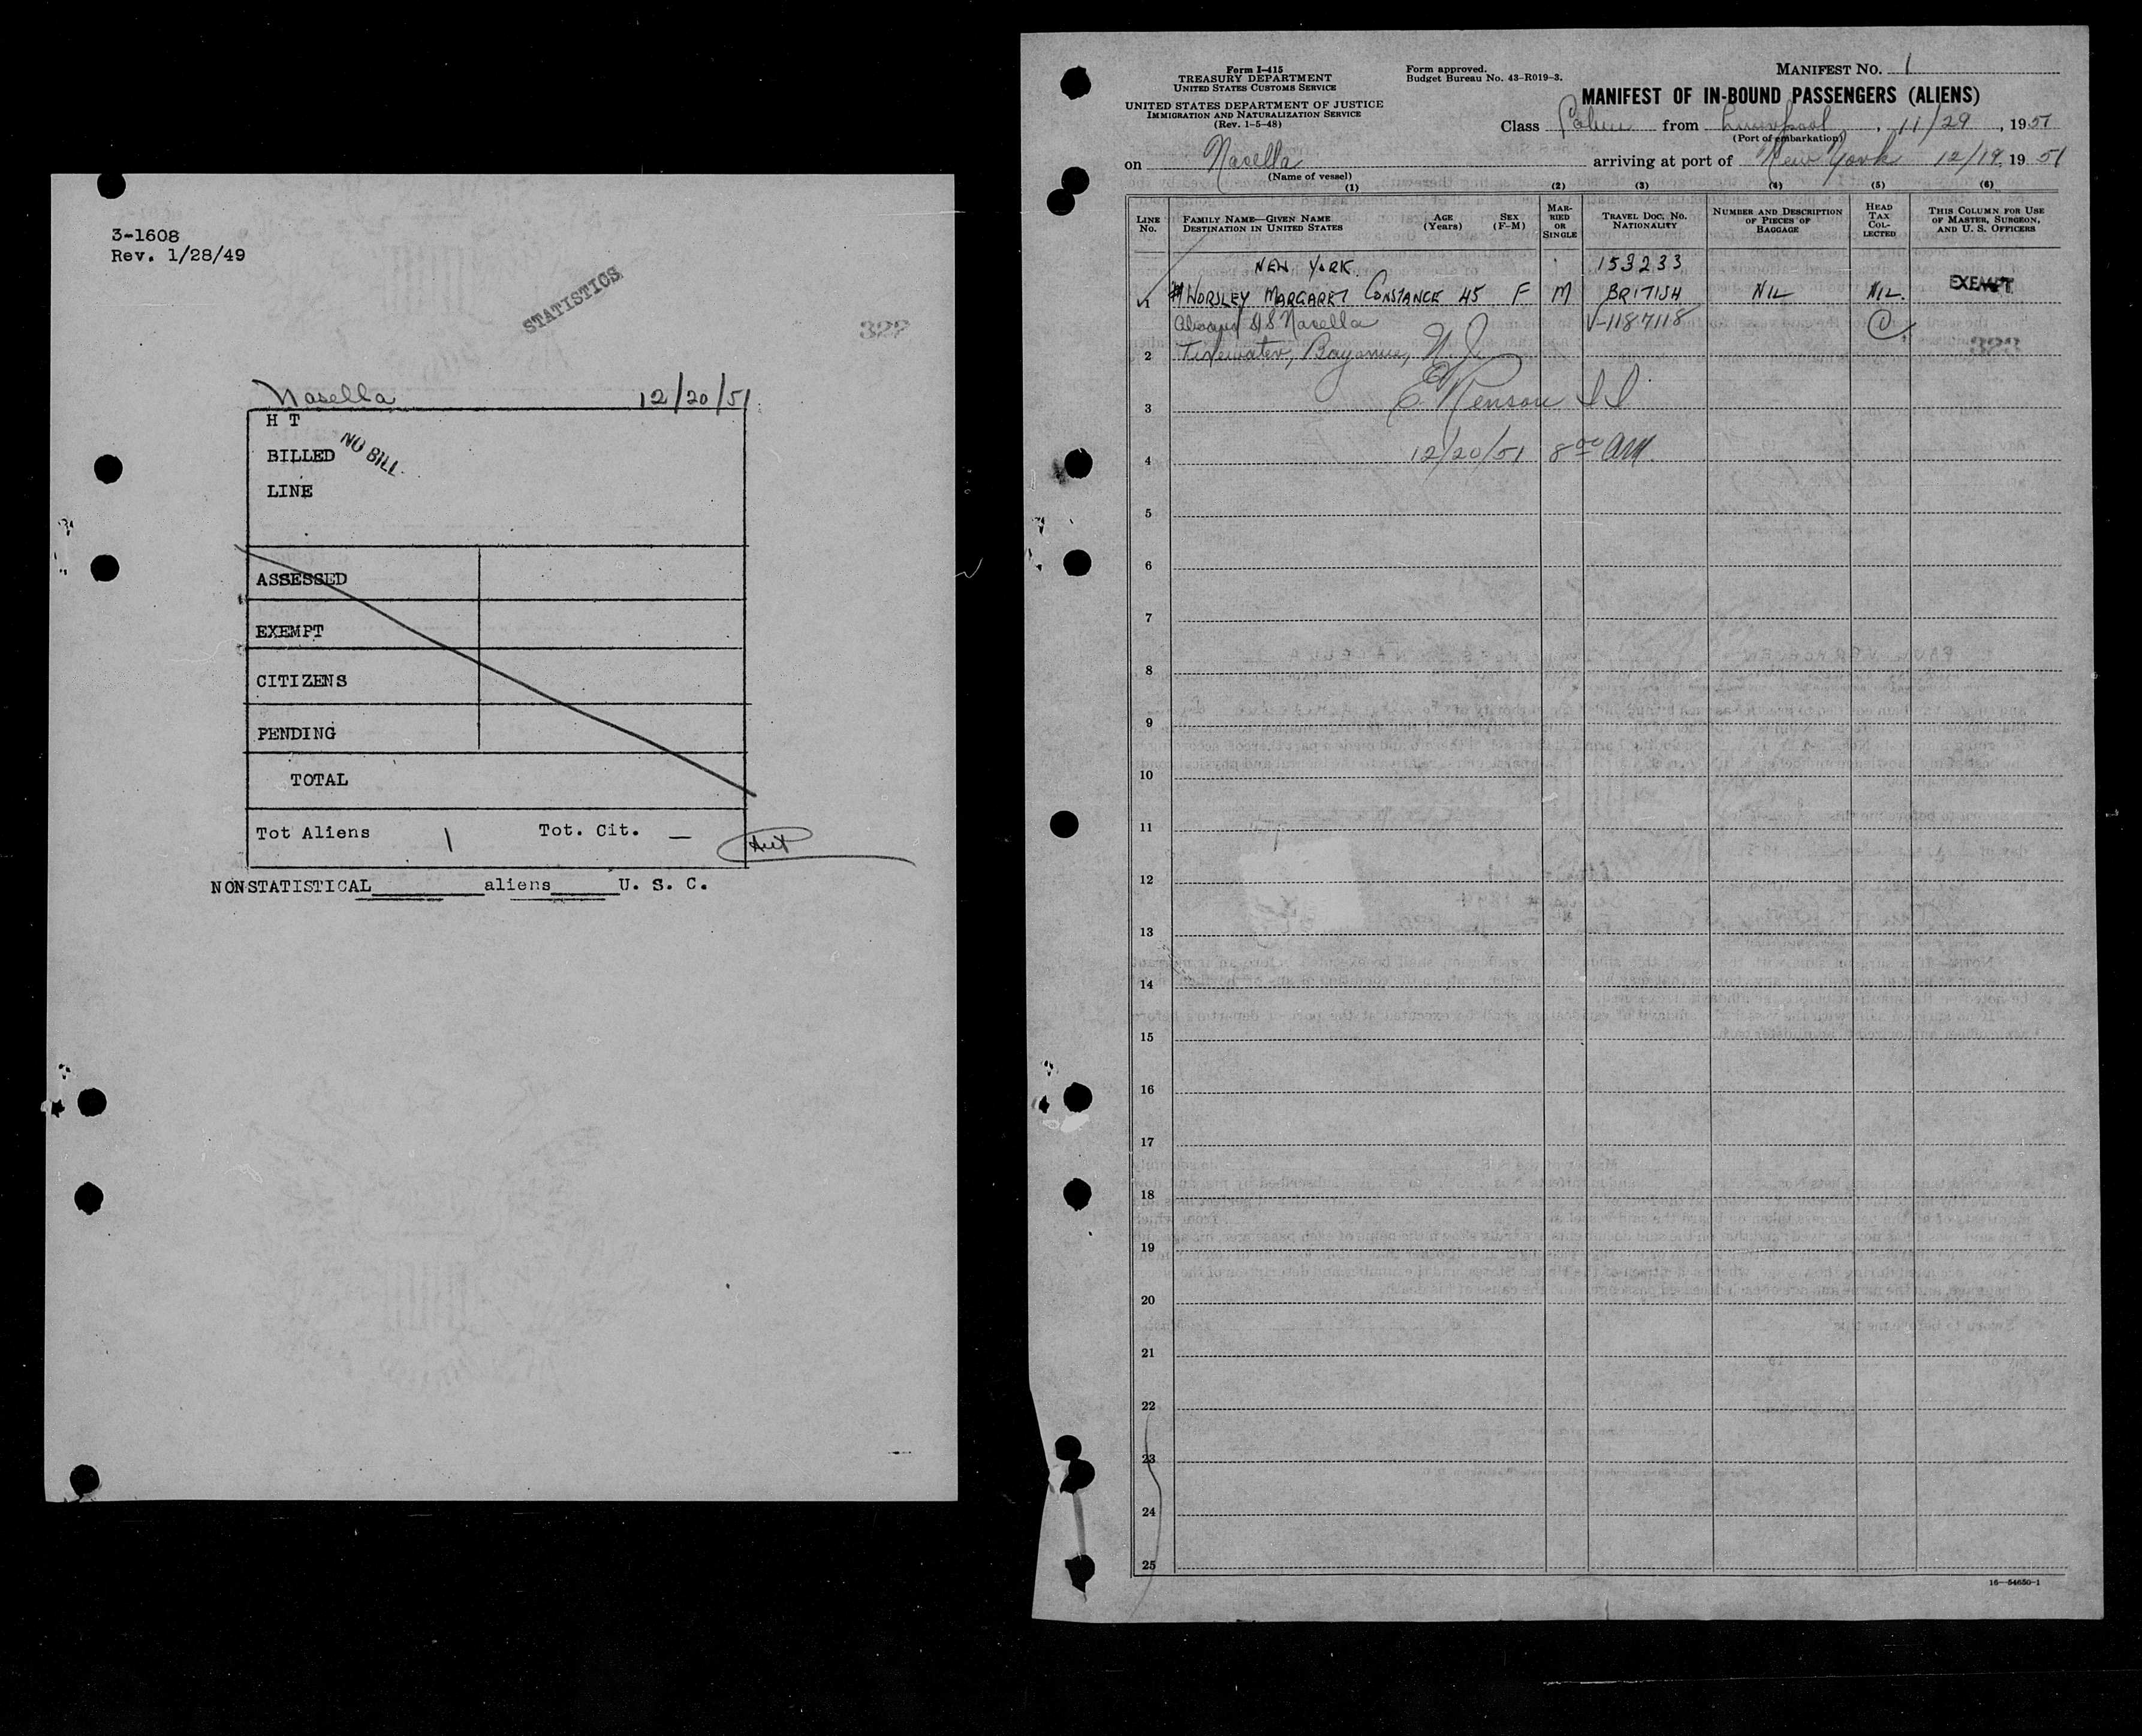 3-1608
Rev. 1/28/49
STATISTICS
Nasella 12/20/51
H T
BILLED NO BILL
LINE
ASSESSED
EXEMPT
CITIZENS
PENDING
TOTAL
Tot Aliens 1 Tot. Cit. —
NONSTATISTICAL aliens U. S. C.
Form I-415
TREASURY DEPARTMENT
UNITED STATES CUSTOMS SERVICE
UNITED STATES DEPARTMENT OF JUSTICE
IMMIGRATION AND NATURALIZATION SERVICE
(Rev. 1-5-48)
Form approved.
Budget Bureau No. 43-R019-3.
MANIFEST NO. 1
MANIFEST OF IN-BOUND PASSENGERS (ALIENS)
Class from Liverpool, 11/29, 1951
(Port of embarkation)
on Nasella arriving at port of New York 12/19, 1951
(Name of vessel)
(1) (2) (3) (4) (5) (6)
LINE No. FAMILY NAME—GIVEN NAME DESTINATION IN UNITED STATES AGE (Years) SEX (F-M) MARRIED OR SINGLE TRAVEL DOC. NO. NATIONALITY NUMBER AND DESCRIPTION OF PIECES OF BAGGAGE HEAD TAX COLLECTED THIS COLUMN FOR USE OF MASTER, SURGEON, AND U. S. OFFICERS
NEW YORK 153233
1 WORSLEY MARGARET CONSTANCE 45 F M BRITISH NIL NIL. EXEMPT
Aboard SS Nasella V-1187118
2 Tidewater, Bayonne, N.J.
3
4 12/20/51 8 00 AM.
5
6
7
8
9
10
11
12
13
14
15
16
17
18
19
20
21
22
23
24
25
16—54650-1